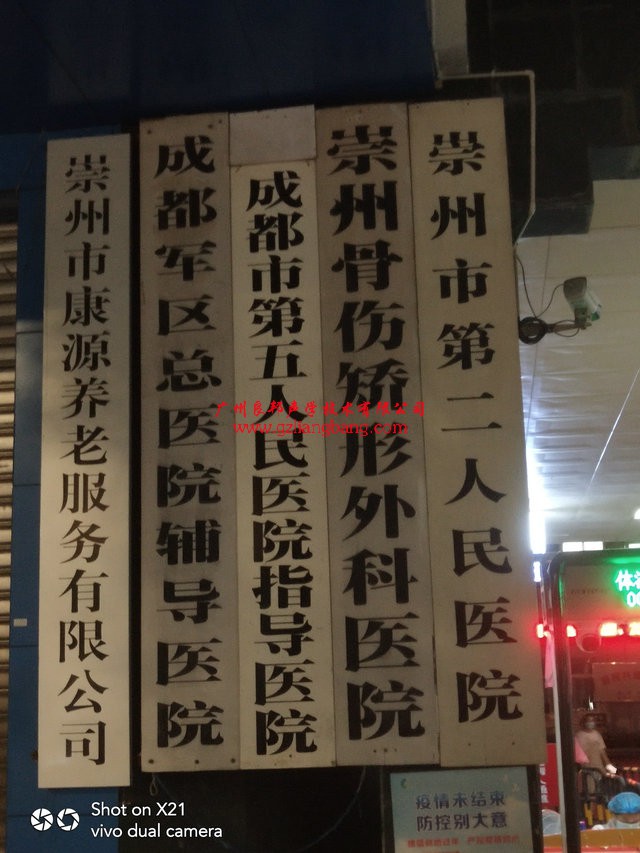 崇州市康源养老服务有限公司
成都军区总医院辅导医院
成都市第五人民医院指导医院
崇州骨伤矫形外科医院
崇州市第二人民医院
广州良邦声学技术有限公司
www.gzliangbang.com
疫情未结束
防控别大意
Shot on X21
vivo dual camera